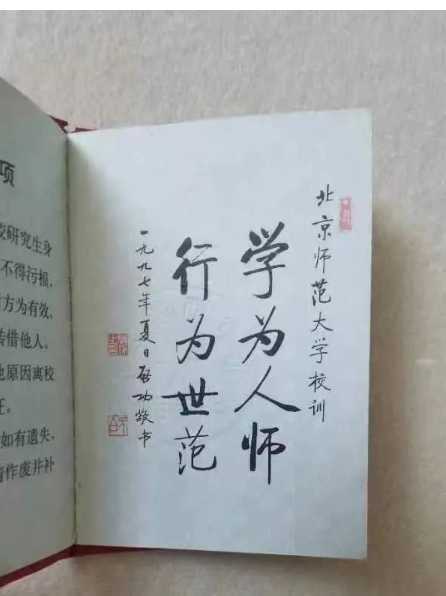 北京师范大学校训
学为人师
行为世范
一九九七年夏日启功敬书
项
校研究生身
不得污损，
方为有效，
转借他人，
他原因离校
证。
如有遗失，
作废并补